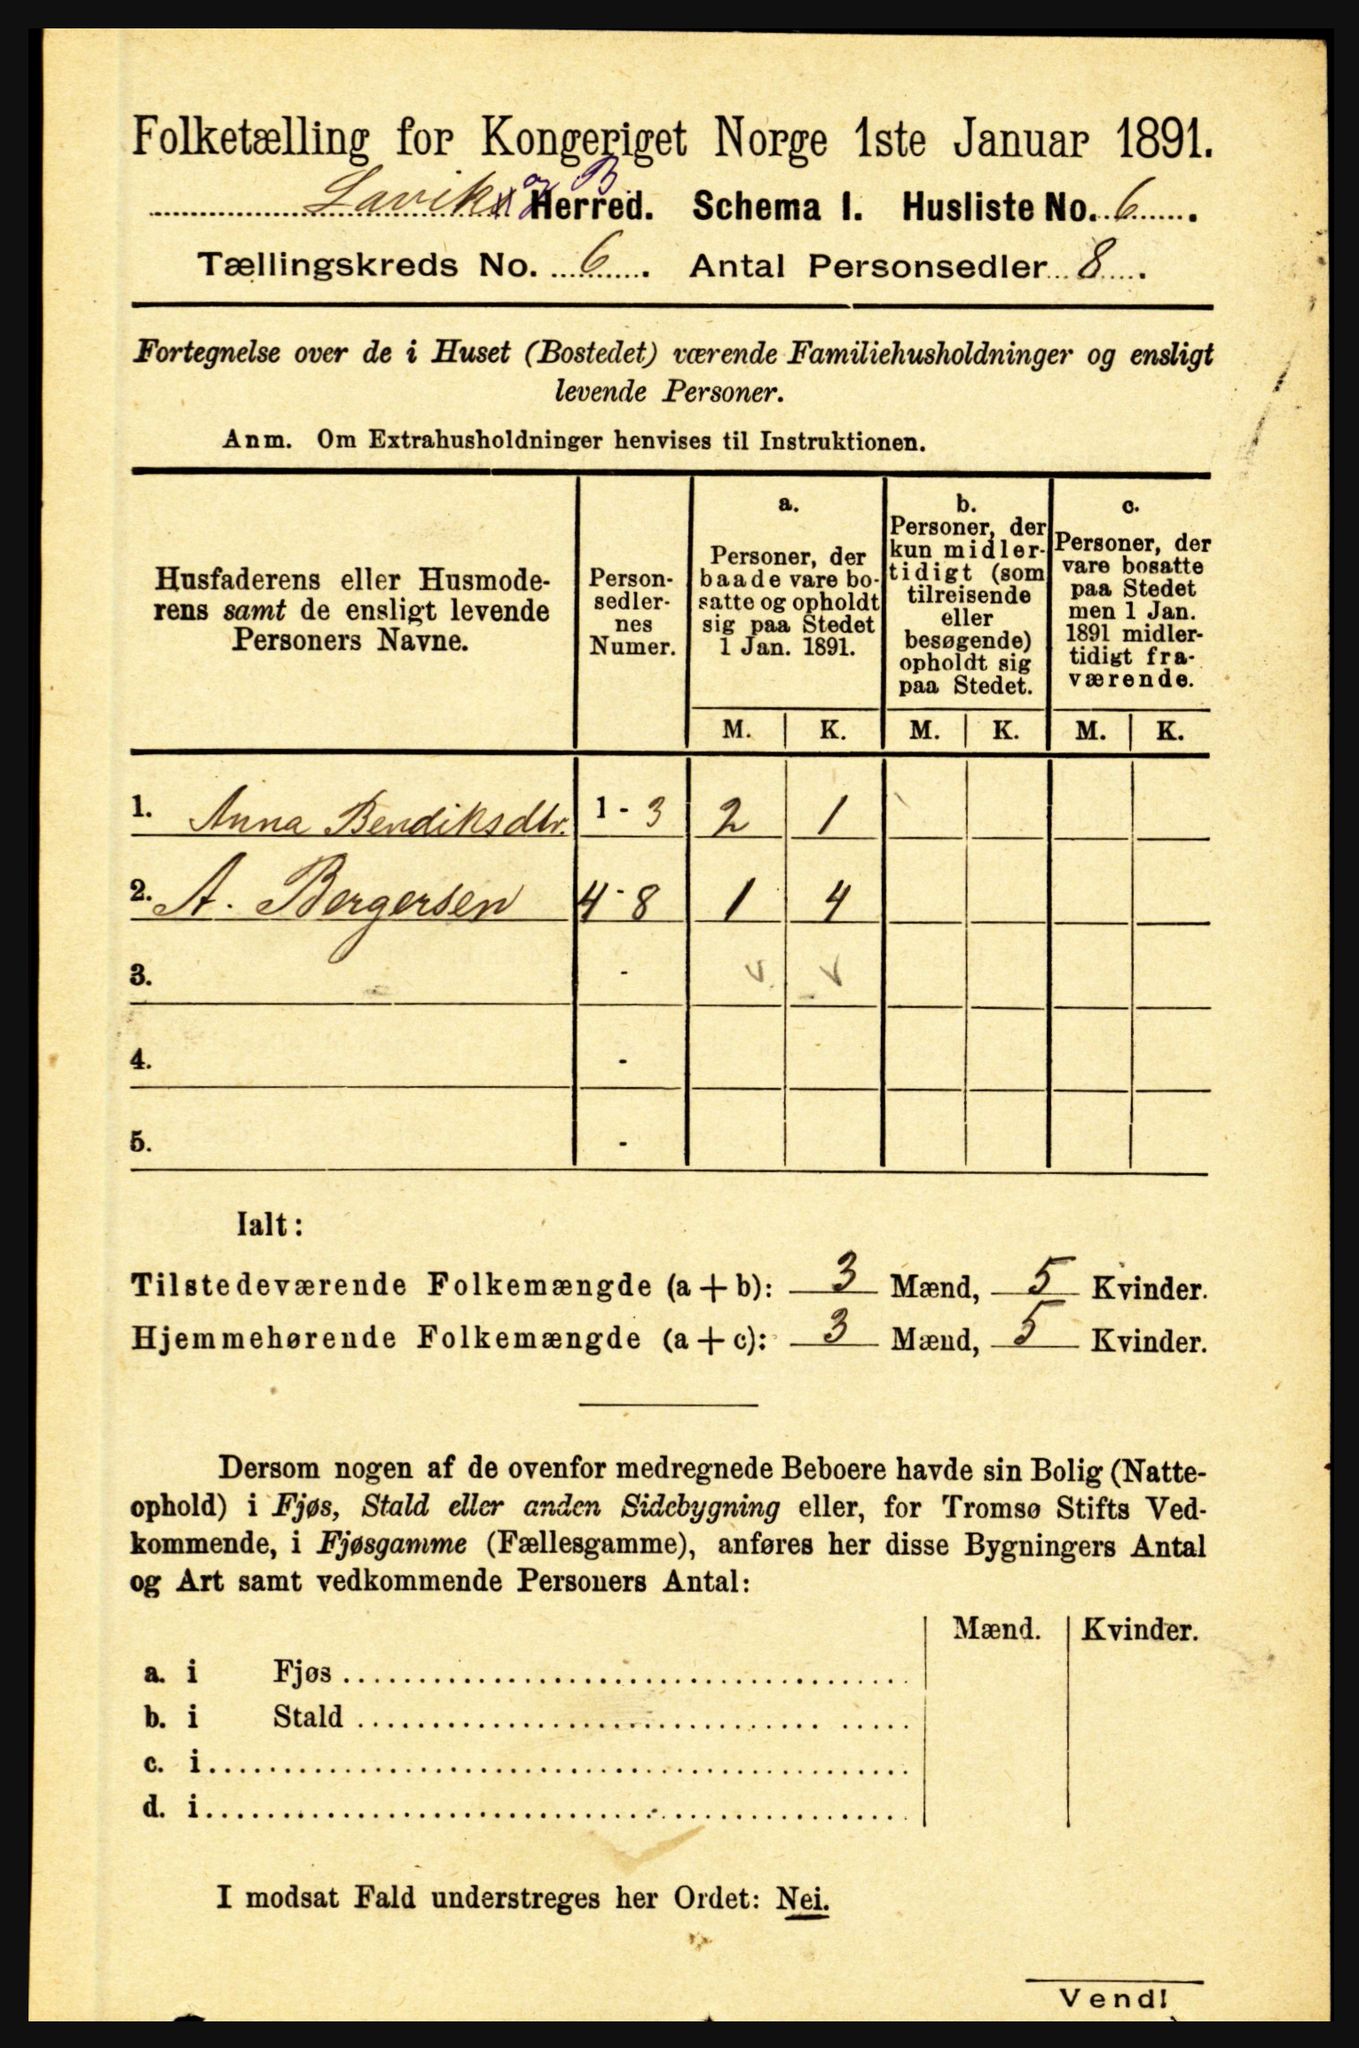 Folketælling for Kongeriget Norge 1ste Januar 1891.
Laviks og B. Herred. Schema I. Husliste No. 6.
Tællingskreds No. 6. Antal Personsedler 8.
Fortegnelse over de i Huset (Bostedet) værende Familiehusholdninger og ensligt
levende Personer.
Anm. Om Extrahusholdninger henvises til Instruktionen.
Husfaderens eller Husmode-
rens samt de ensligt levende
Personers Navne.
Person-
sedler-
nes
Numer.
a.
Personer, der
baade vare bo-
satte og opholdt
sig paa Stedet
1 Jan. 1891.
b.
Personer, der
kun midler-
tidigt (som
tilreisende
eller
besøgende)
opholdt sig
paa Stedet.
c.
Personer, der
vare bosatte
paa Stedet
men 1 Jan.
1891 midler-
tidigt fra-
værende.
M. K. M. K. M. K.
1. Anna Bendiksdtr. 1 - 3 2 1
2. A. Bergersen 4 - 8 1 4
3. -
4. -
5. -
Ialt:
Tilstedeværende Folkemængde (a + b): 3 Mænd, 5 Kvinder.
Hjemmehørende Folkemængde (a + c): 3 Mænd, 5 Kvinder.
Dersom nogen af de ovenfor medregnede Beboere havde sin Bolig (Natte-
ophold) i Fjøs, Stald eller anden Sidebygning eller, for Tromsø Stifts Ved-
kommende, i Fjøsgamme (Fællesgamme), anføres her disse Bygningers Antal
og Art samt vedkommende Personers Antal:
Mænd. Kvinder.
a. i Fjøs
b. i Stald
c. i
d. i
I modsat Fald understreges her Ordet: Nei.
Vend!